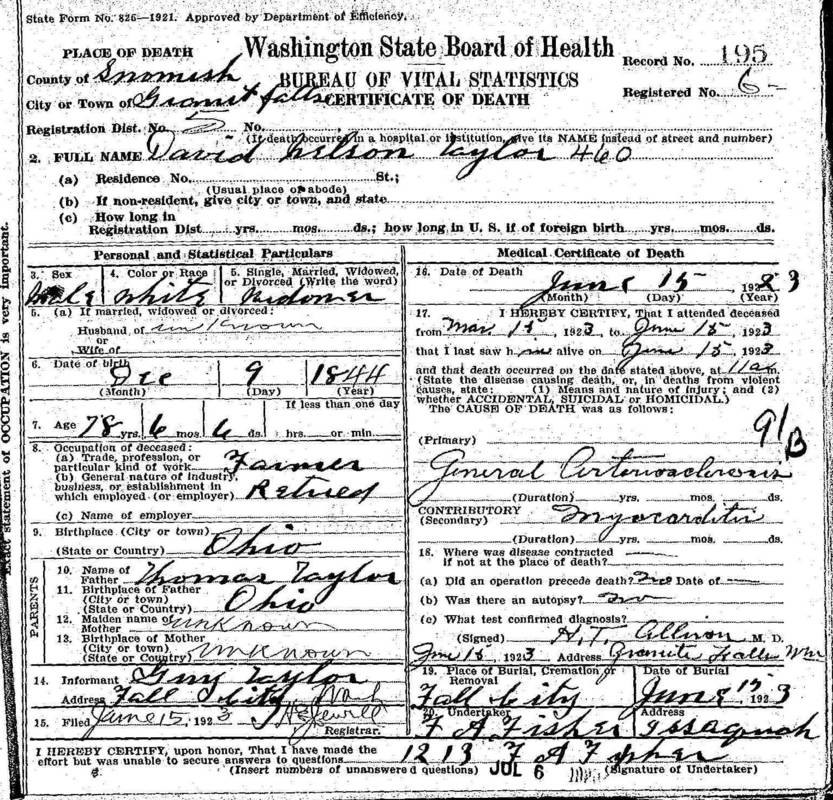 State Form No. 826—1921. Approved by Department of Efficiency.
PLACE OF DEATH
Washington State Board of Health
Record No. 195
County of Snomish
BUREAU OF VITAL STATISTICS
Registered No. 6-
City or Town of Granit falls
CERTIFICATE OF DEATH
Registration Dist. No. 5 No.
(If death occurred in a hospital or institution, give its NAME instead of street and number)
2. FULL NAME David Nelson Taylor 460
(a) Residence No. St.;
(Usual place of abode)
(b) If non-resident, give city or town, and state
(c) How long in
Registration Dist yrs. mos. ds.; how long in U. S. if of foreign birth yrs. mos. ds.
Personal and Statistical Particulars
3. Sex
Male
4. Color or Race
White
5. Single, Married, Widowed,
or Divorced (Write the word)
Widower
5. (a) If married, widowed or divorced:
Husband of unknown
or
Wife of
6. Date of birth
Dec 9 1844
(Month) (Day) (Year)
If less than one day
7. Age 78 yrs. 6 mos. 6 ds. hrs. or min.
8. Occupation of deceased:
(a) Trade, profession, or
particular kind of work Farmer
(b) General nature of industry,
business, or establishment in
which employed (or employer) Retired
(c) Name of employer
9. Birthplace (City or town)
(State or Country) Ohio
PARENTS
10. Name of
Father Thomas Taylor
11. Birthplace of Father
(City or town)
(State or Country) Ohio
12. Maiden name of
Mother unknown
13. Birthplace of Mother
(City or town)
(State or Country) unknown
14. Informant Guy Taylor
Address Fall City Wash
15. Filed June 15, 1923 Jewell
Registrar.
Medical Certificate of Death
16. Date of Death
June 15 1923
(Month) (Day) (Year)
17. I HEREBY CERTIFY, That I attended deceased
from Mar 15, 1923, to June 15, 1923
that I last saw him alive on June 15, 1923
and that death occurred on the date stated above, at 11 a m.
(State the disease causing death, or, in deaths from violent
causes, state: (1) Means and nature of injury; and (2)
whether ACCIDENTAL, SUICIDAL or HOMICIDAL.)
The CAUSE OF DEATH was as follows:
91B
(Primary)
General Arteriosclerosis
(Duration) yrs. mos. ds.
CONTRIBUTORY
(Secondary) Myocarditis
(Duration) yrs. mos. ds.
18. Where was disease contracted
if not at the place of death?
(a) Did an operation precede death? no Date of
(b) Was there an autopsy? no
(c) What test confirmed diagnosis?
(Signed) H. T. Allison M. D.
June 15 1923 Address Granite Falls Wn
19. Place of Burial, Cremation or
Removal
Fall City
Date of Burial
June 15 1923
20. Undertaker
F A Fisher
Address
Issaquah
I HEREBY CERTIFY, upon honor, That I have made the
effort but was unable to secure answers to questions 12 13 F A Fisher
(Insert numbers of unanswered questions) JUL 6 (Signature of Undertaker)
Exact statement of OCCUPATION is very important.